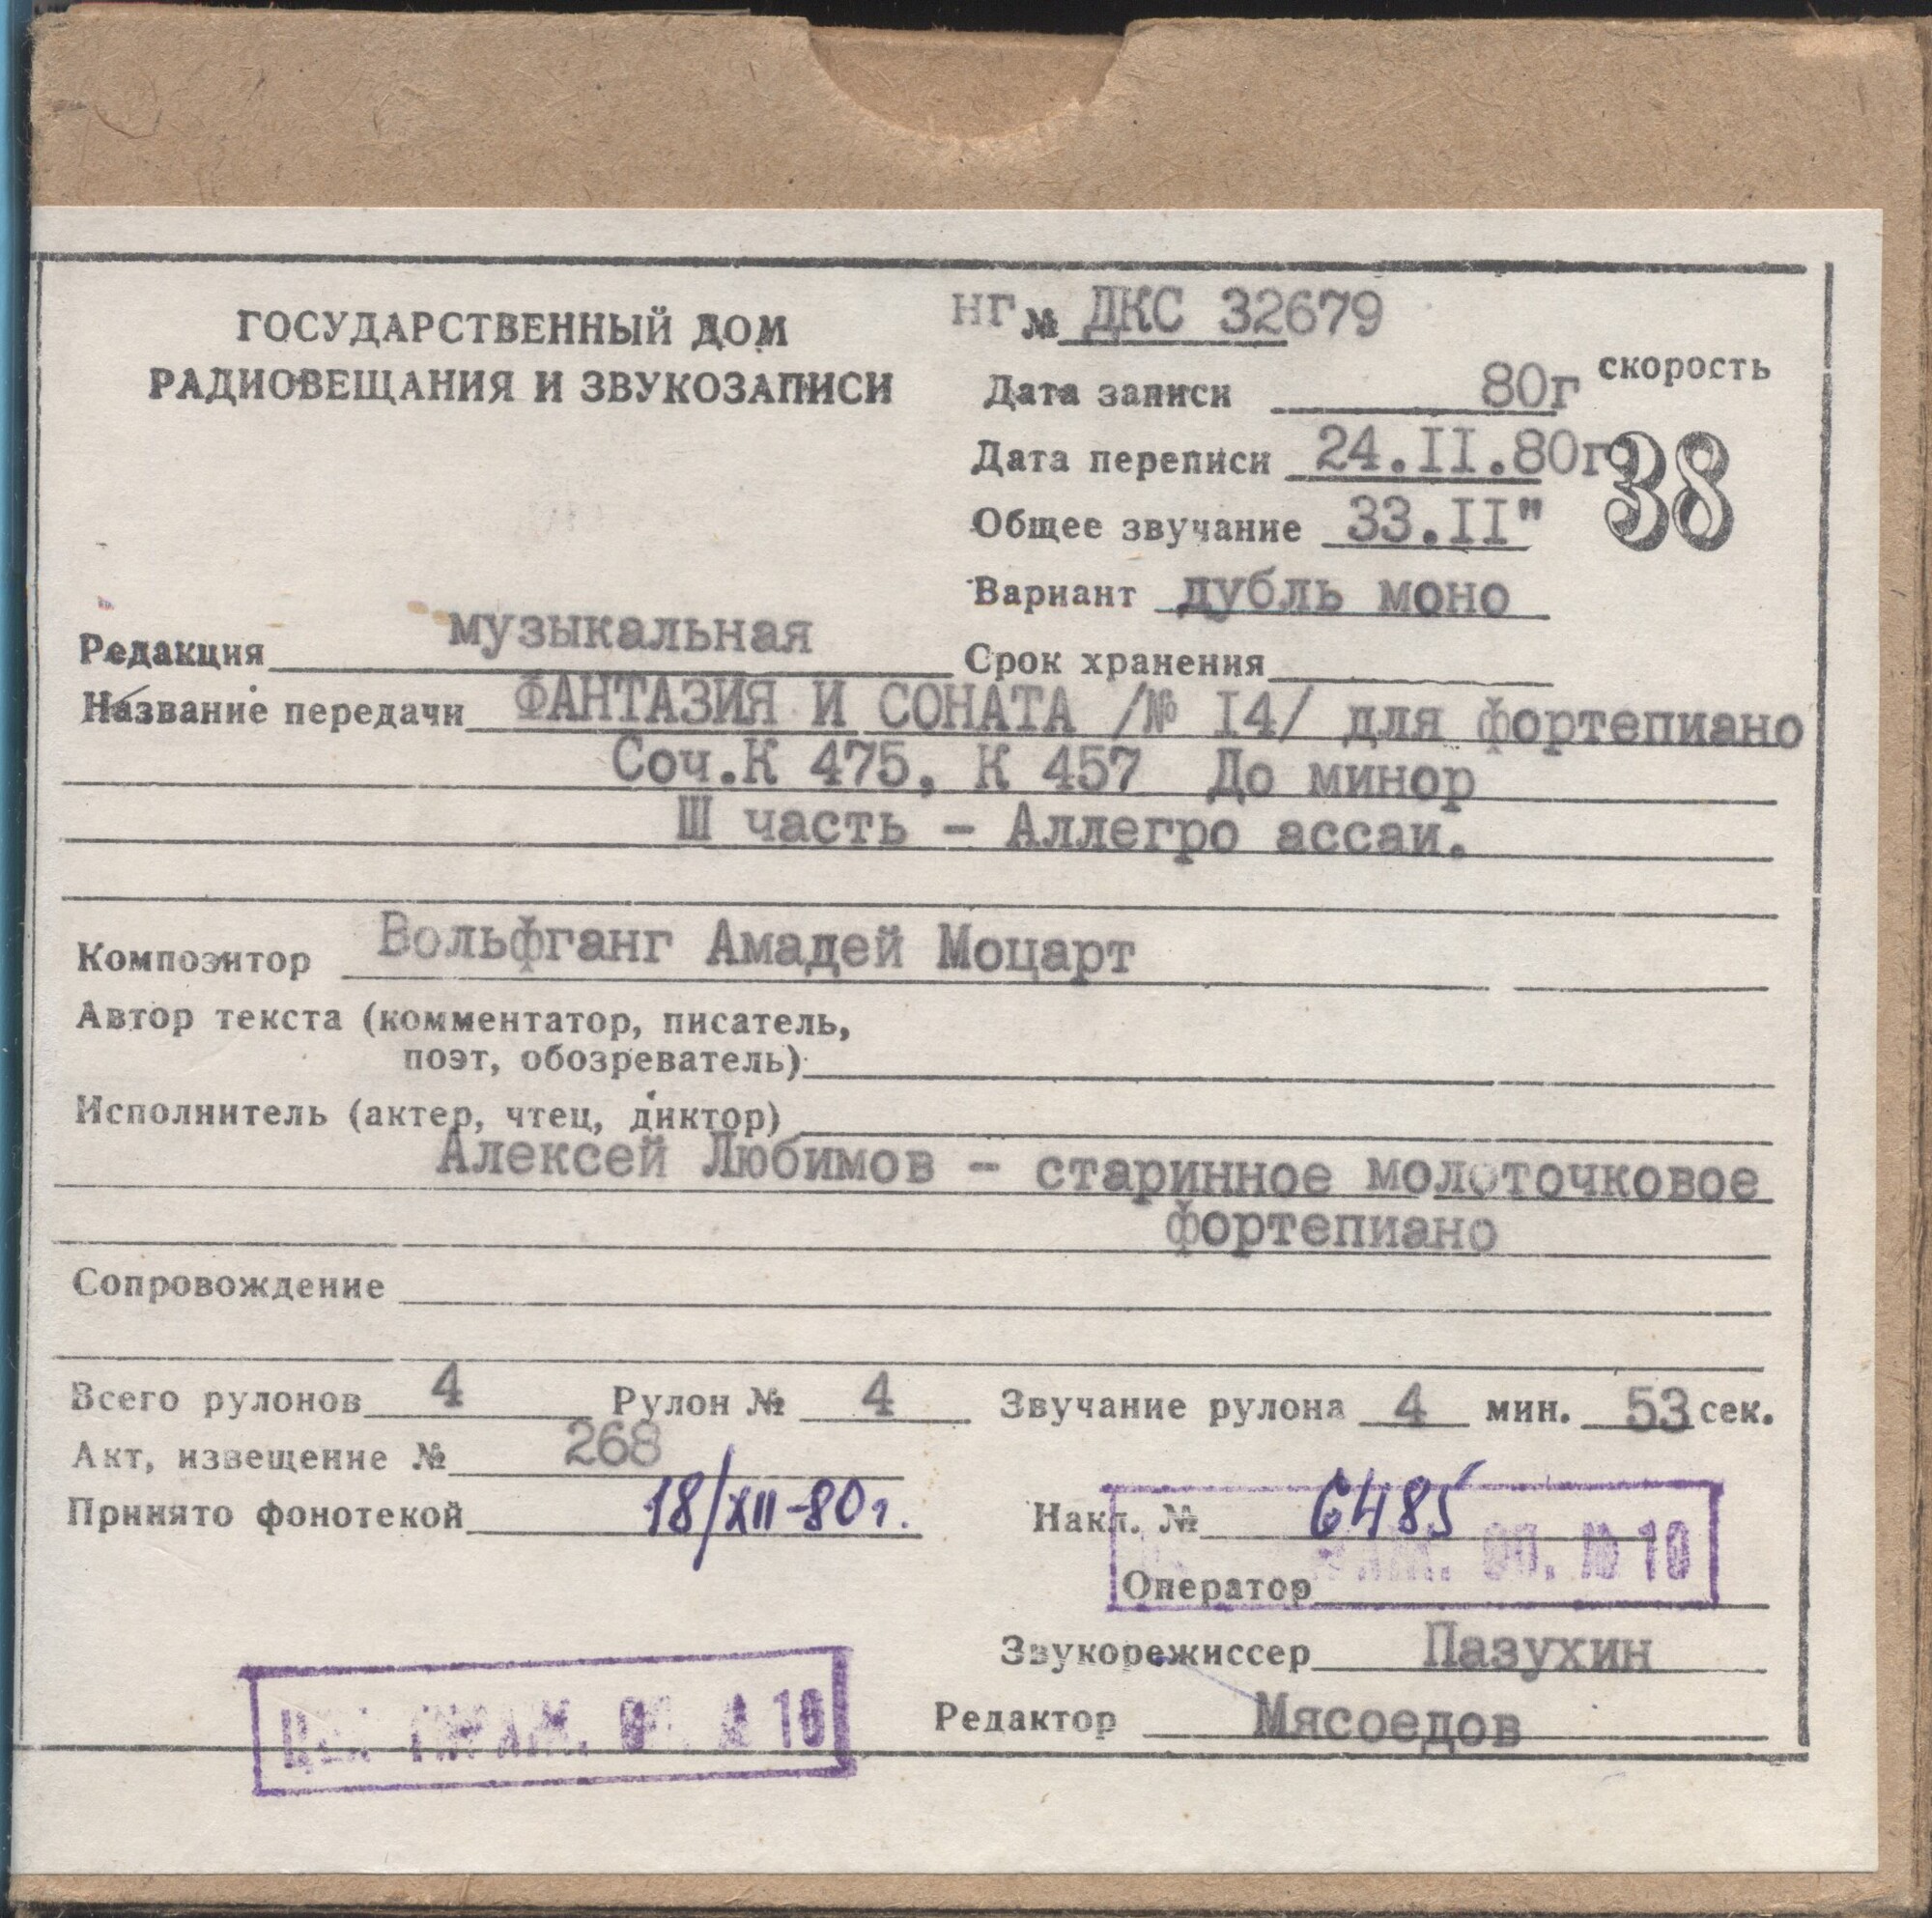 ГОСУДАРСТВЕННЫЙ ДОМ
РАДИОВЕЩАНИЯ И ЗВУКОЗАПИСИ
нг № ДКС 32679
Дата записи 80г скорость
Дата переписи 24.II.80г 38
Общее звучание 33.II"
Вариант дубль моно
Редакция музыкальная Срок хранения
Название передачи ФАНТАЗИЯ И СОНАТА /№ I4/ для фортепиано
Соч.К 475, К 457 До минор
Ш часть - Аллегро ассаи.
Композитор Вольфганг Амадей Моцарт
Автор текста (комментатор, писатель,
поэт, обозреватель)
Исполнитель (актер, чтец, диктор)
Алексей Любимов - старинное молоточковое
фортепиано
Сопровождение
Всего рулонов 4 Рулон № 4 Звучание рулона 4 мин. 53 сек.
Акт, извещение № 268
Принято фонотекой 18/XII-80г. Накл. № 6485
ОП. № 10
Оператор
Звукорежиссер Пазухин
Редактор Мясоедов
10